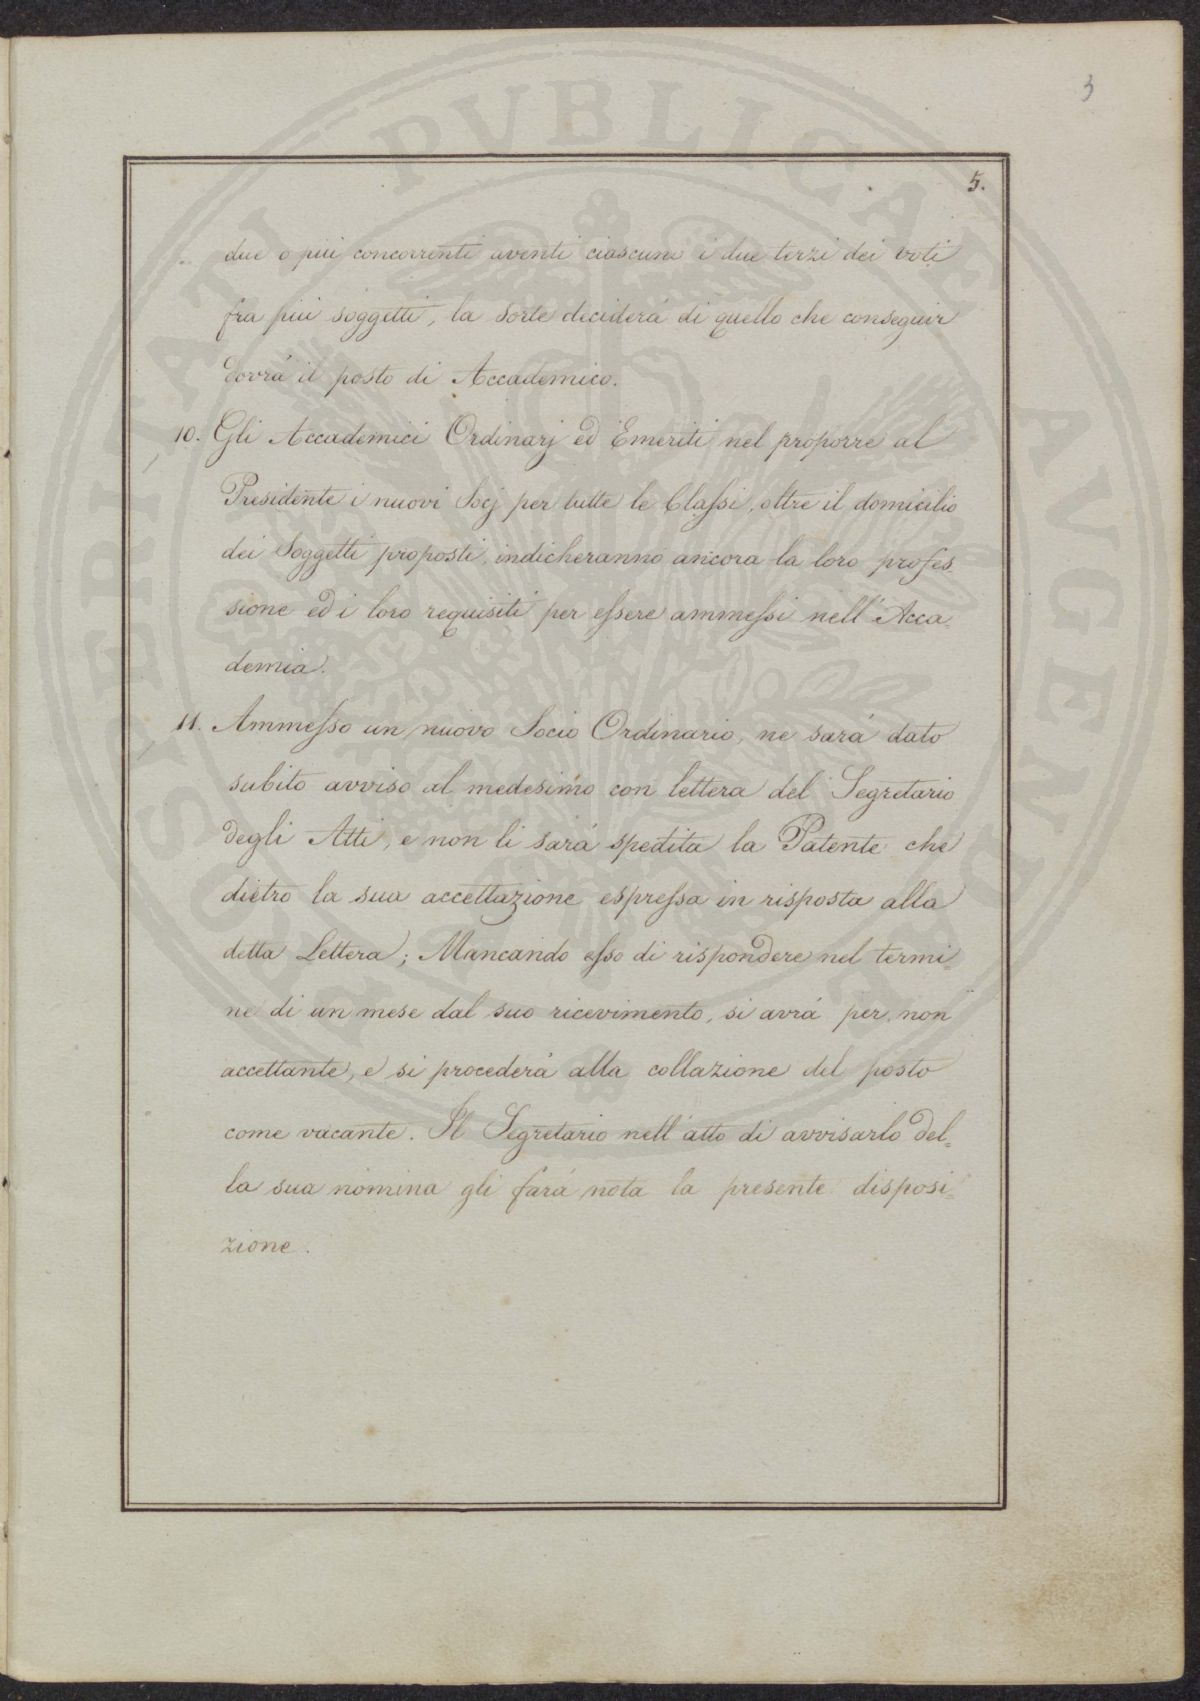 3
5.
due o piú concorrenti aventi ciascuno i due terzi dei voti
fra piú soggetti, la sorte deciderá di quello che conseguir
dovrá il posto di Accademico.
10. Gli Accademici Ordinarj ed Emeriti nel proporre al
Presidente i nuovi Socj per tutte le Claſsi, oltre il domicilio
dei Soggetti proposti, indicheranno ancora la loro profes
sione ed i loro requisiti per eſsere ammeſsi nell'Acca=
demia.
11. Ammeſso un nuovo Socio Ordinario, ne sará dato
subito avviso al medesimo con lettera del Segretario
degli Atti, e non li sará spedita la Patente che
dietro la sua accettazione espreſsa in risposta alla
detta Lettera; Mancando eſso di rispondere nel termi=
ne di un mese dal suo ricevimento, si avrá per non
accettante, e si procederá alla collazione del posto
come vacante. Il Segretario nell'atto di avvisarlo del=
la sua nomina gli fará nota la presente disposi=
zione.
PROSPERITATI PVBLICAE AVGENDAE